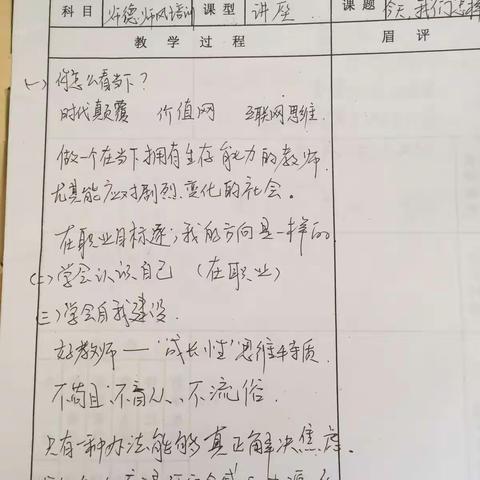 科目 师德师风培训 课型 讲座 课题 今天,我们怎样
教学过程 眉评
(一)你怎么看当下?
时代颠覆 价值网 互联网思维.
做一个在当下拥有生存能力的教师.
尤其能应对剧烈.变化的社会。
在职业目标逐;我的方向是一样的
(二)学会认识自己 (在职业)
(三)学会自我建设.
好教师—"成长性"思维4特质.
不苟且、不盲从、不流俗.
只有一种办法能够真正解决焦虑.